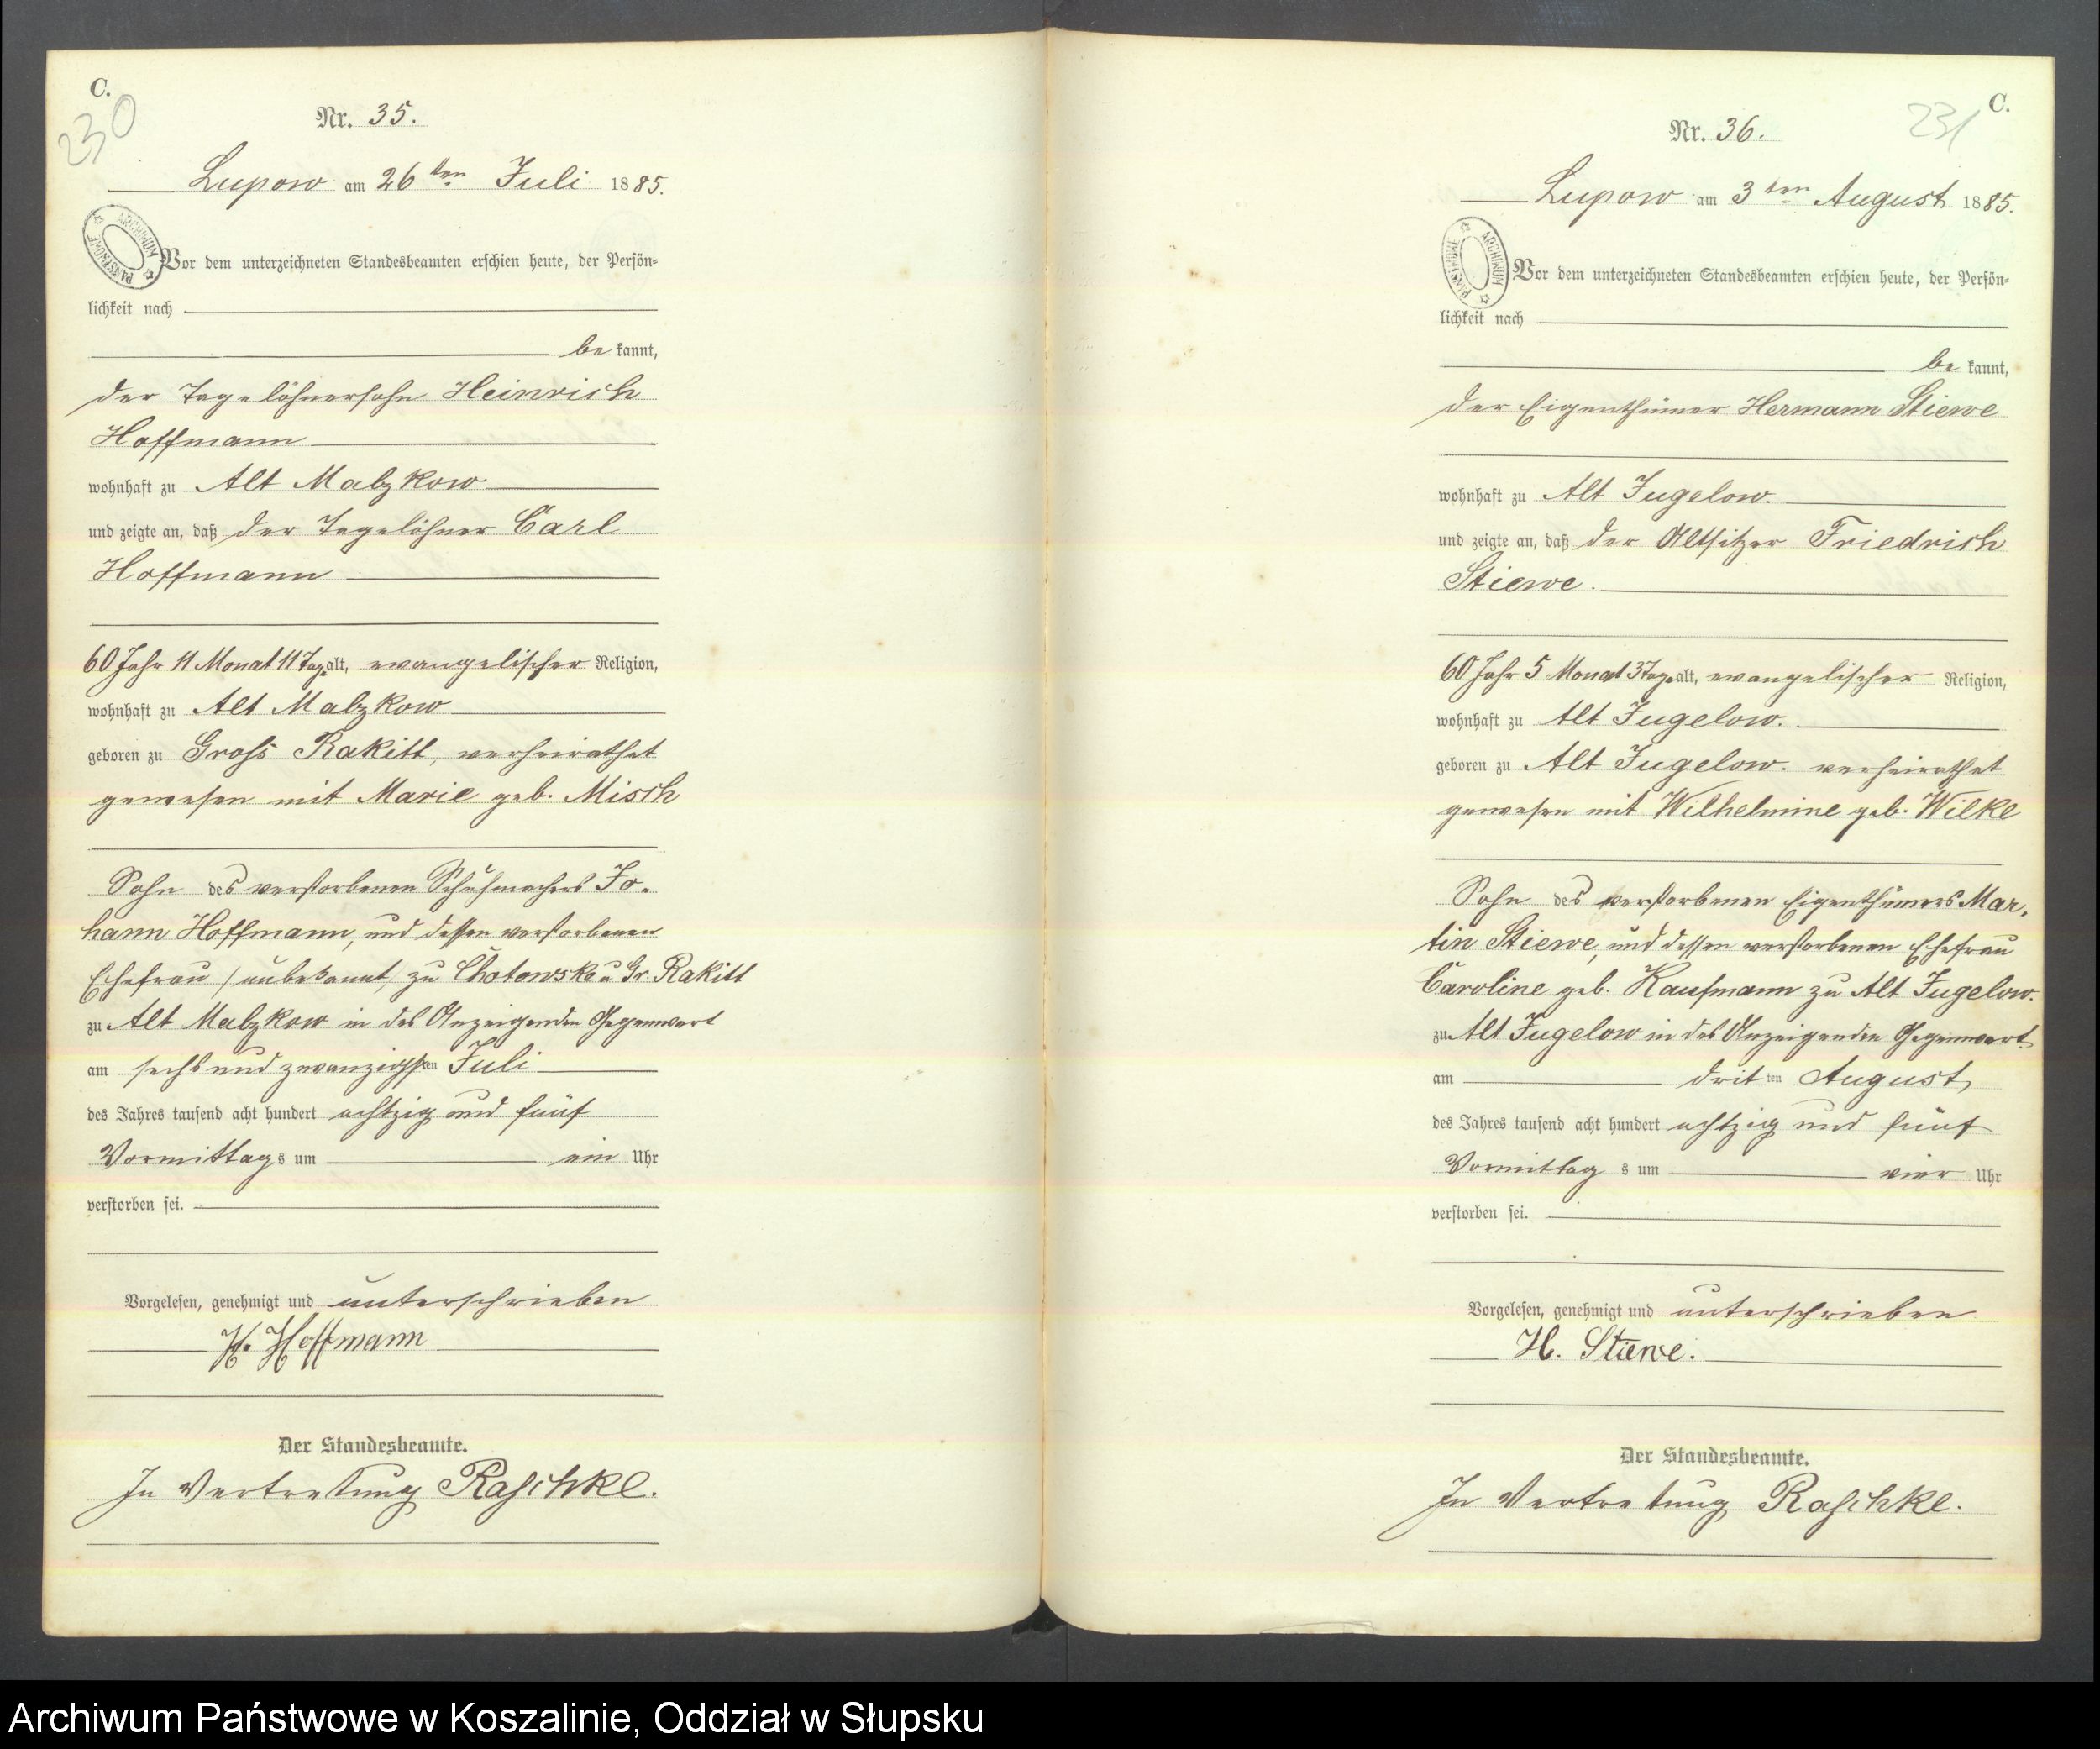 C.
230
Nr. 35.
Lupow am 26ten Juli 1885.
ARCHIWUM PAŃSTWOWE
Vor dem unterzeichneten Standesbeamten erschien heute, der Persön=
lichkeit nach
be kannt,
der Tagelöhnersohn Heinrich
Hoffmann
wohnhaft zu Alt Malzkow
und zeigte an, daß der Tagelöhner Carl
Hoffmann
60 Jahr 11 Monat 11 Tage alt, evangelischer Religion,
wohnhaft zu Alt Malzkow
geboren zu Gross Rakitt, verheirathet
gewesen mit Marie geb. Misch
Sohn des verstorbenen Schuhmachers Jo-
hann Hoffmann, und dessen verstorbenen
Ehefrau /unbekannt/ zu Chotowsko u Gr. Rakitt
zu Alt Malzkow in des Anzeigenden Gegenwart
am sechs und zwanzigsten Juli
des Jahres tausend acht hundert achtzig und fünf
Vormittags um ein Uhr
verstorben sei.
Vorgelesen, genehmigt und unterschrieben
H. Hoffmann
Der Standesbeamte.
In Vertretung Raschke.
C.
231
Nr. 36.
Lupow am 3ten August 1885.
ARCHIWUM PAŃSTWOWE
Vor dem unterzeichneten Standesbeamten erschien heute, der Persön=
lichkeit nach
be kannt,
der Eigenthümer Hermann Stiewe
wohnhaft zu Alt Jugelow.
und zeigte an, daß der Altsitzer Friedrich
Stiewe.
60 Jahr 5 Monat 3 Tage alt, evangelischer Religion,
wohnhaft zu Alt Jugelow.
geboren zu Alt Jugelow. verheirathet
gewesen mit Wilhelmine geb. Wilke
Sohn des verstorbenen Eigenthümers Mar-
tin Stiewe, und dessen verstorbenen Ehefrau
Caroline geb. Kaufmann zu Alt Jugelow.
zu Alt Jugelow in des Anzeigenden Gegenwart
am dritten August
des Jahres tausend acht hundert achtzig und fünf
Vormittag s um vier Uhr
verstorben sei.
Vorgelesen, genehmigt und unterschrieben
H. Stiewe.
Der Standesbeamte.
In Vertretung Raschke.
Archiwum Państwowe w Koszalinie, Oddział w Słupsku